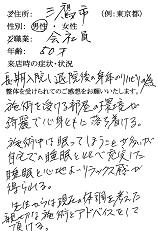 ご住所: 三鷹市 (例:東京都)
性別: 男性・女性
ご職業: 会社員
年齢: 50才
来店時の症状・状況
長期入院し退院後の身体のリハビリ後
整体を受けられてのご感想をお願いいたします。
施術を受ける部屋の環境が
綺麗で心身ともに落ち着ける。
施術中は眠ってしまうことが多いが
自宅での睡眠と比べ充実した
睡眠と心地よいリラックス感が
得られる。
生活から現在の体調を考えた
親切な施術とアドバイスをして
頂ける。